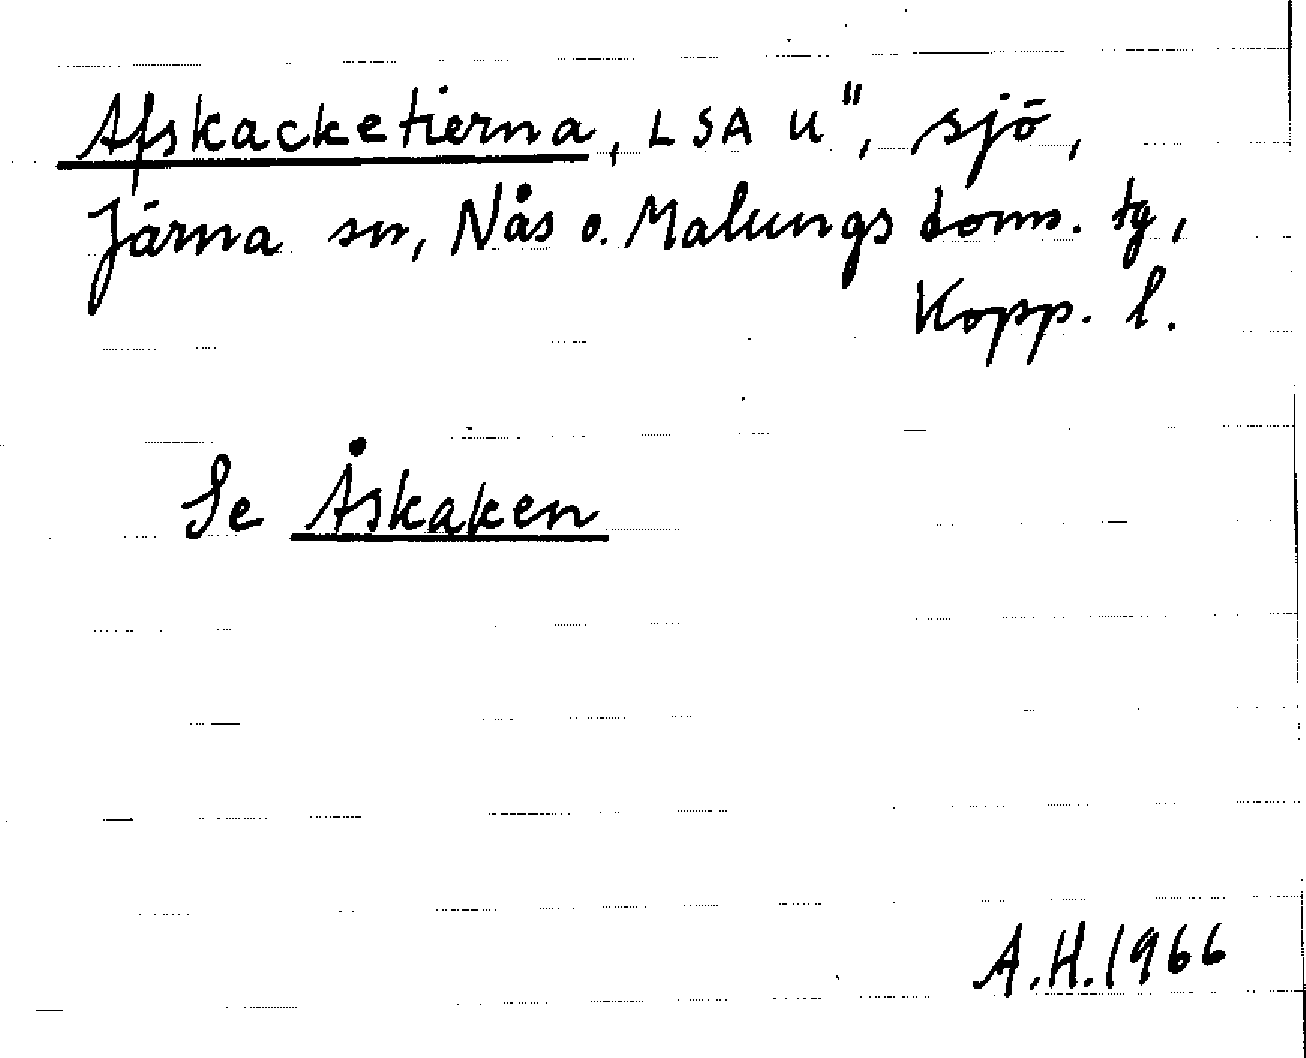 Afskacketierna, LSA U", sjö,
Järna sn, Nås o. Malungs doms. tg,
Kopp. l.
Se Åskaken
A.H. 1966